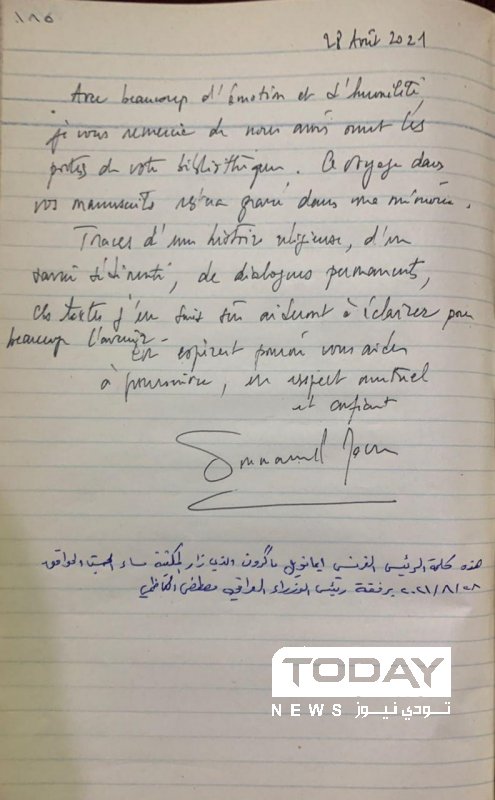 ١٨٥
28 Août 2021
Avec beaucoup d'émotion et d'humilité,
je vous remercie de nous avoir ouvert les
portes de votre bibliothèque. Ce voyage dans
vos manuscrits restera gravé dans ma mémoire.
Traces d'une histoire religieuse, d'un
savoir sédimenté, de dialogues permanents,
ces textes j'en suis sûr aideront à éclairer pour
beaucoup l'avenir.
en espérant pouvoir vous aider
à poursuivre, en respect mutuel
et confiant
Emmanuel Macron
هذه كلمة الرئيس الفرنسي ايمانويل ماكرون والذي زار المكتبة مساء السبت الموافق
٢٠٢١/٨/٢٨ برفقة رئيس الوزراء العراقي مصطفى الكاظمي
TODAY
NEWS تودي نيوز